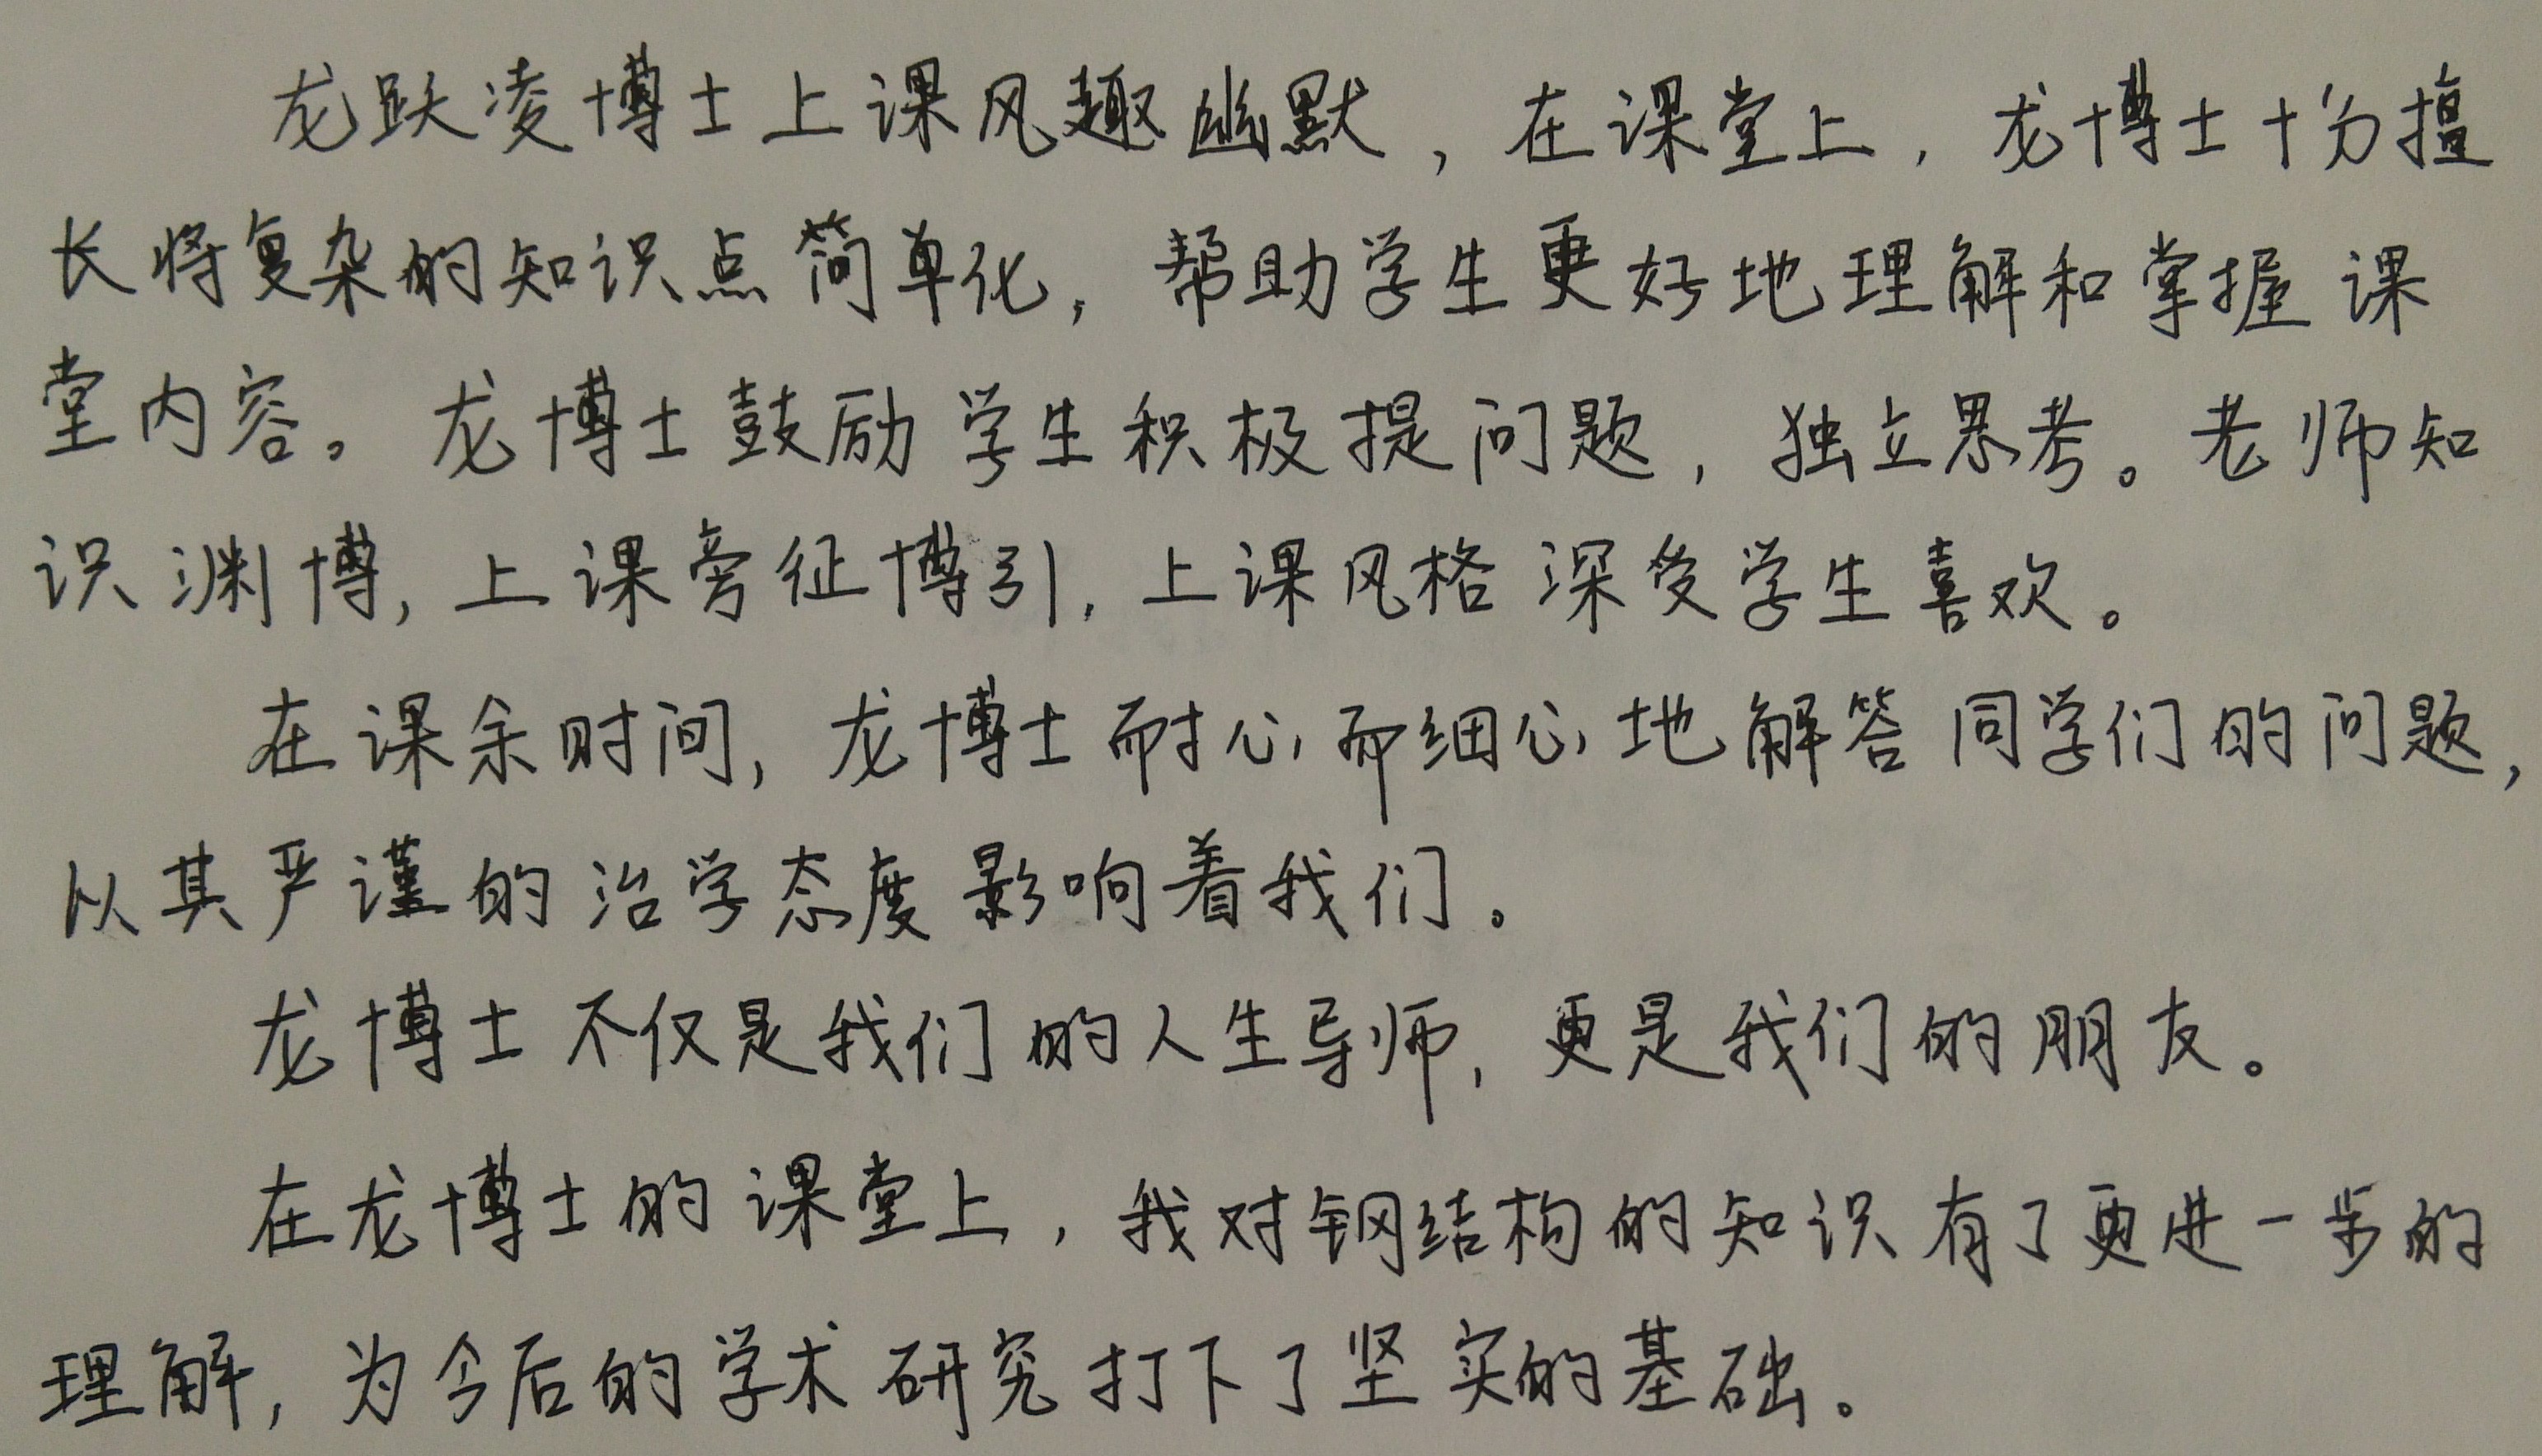 龙跃凌博士上课风趣幽默，在课堂上，龙博士十分擅
长将复杂的知识点简单化，帮助学生更好地理解和掌握课
堂内容。龙博士鼓励学生积极提问题，独立思考。老师知
识渊博，上课旁征博引，上课风格深受学生喜欢。
在课余时间，龙博士耐心而细心地解答同学们的问题，
以其严谨的治学态度影响着我们。
龙博士不仅是我们的人生导师，更是我们的朋友。
在龙博士的课堂上，我对钢结构的知识有了更进一步的
理解，为今后的学术研究打下了坚实的基础。